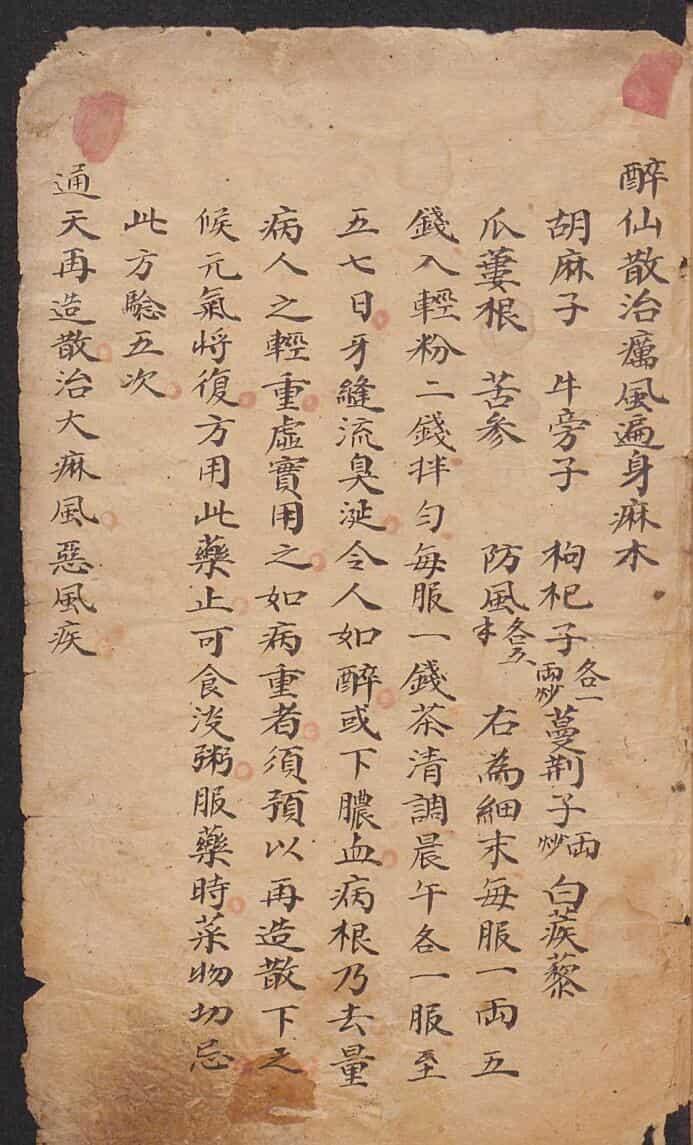 醉仙散治癘風遍身麻木
胡麻子 牛旁子 枸杞子各一兩炒 蔓荆子兩炒 白蒺藜
瓜蔞根 苦參 防風各五 右為細末每服一両五
錢入輕粉二錢拌匀每服一錢茶清調晨午各一服至
五七日牙縫流臭涎令人如醉或下膿血病根乃去量
病人之輕重虛實用之如病重者須預以再造散下之
候元氣將復方用此藥止可食淡粥服藥時菜物切忌
此方驗五次
通天再造散治大痳風惡風疾